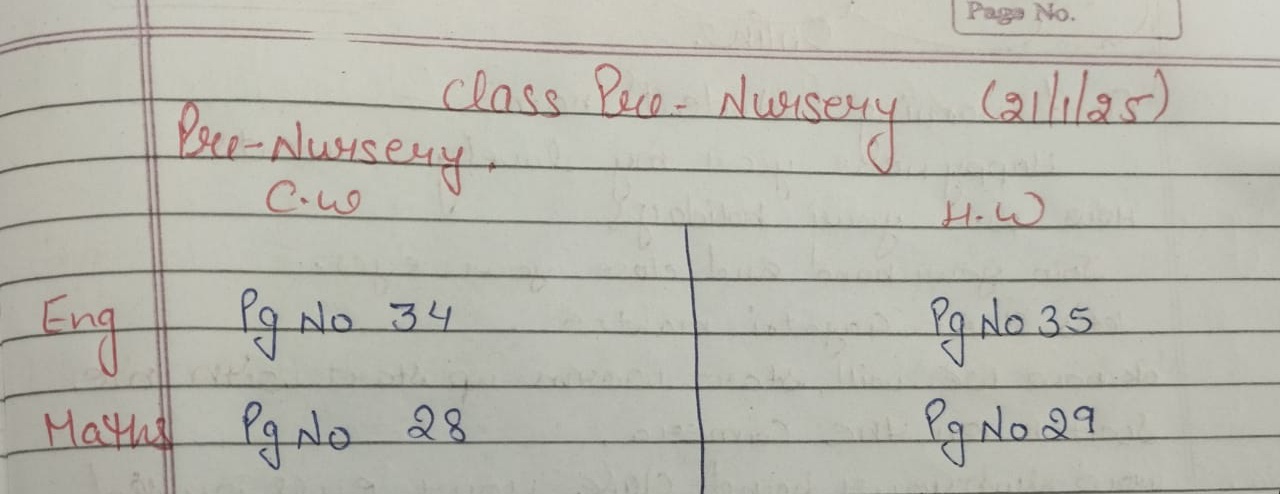 Page No.
Class Pre-Nursery (21/1/25)
Pre-Nursery.
C.W H.W
Eng Pg No 34 Pg No 35
Maths Pg No 28 Pg No 29